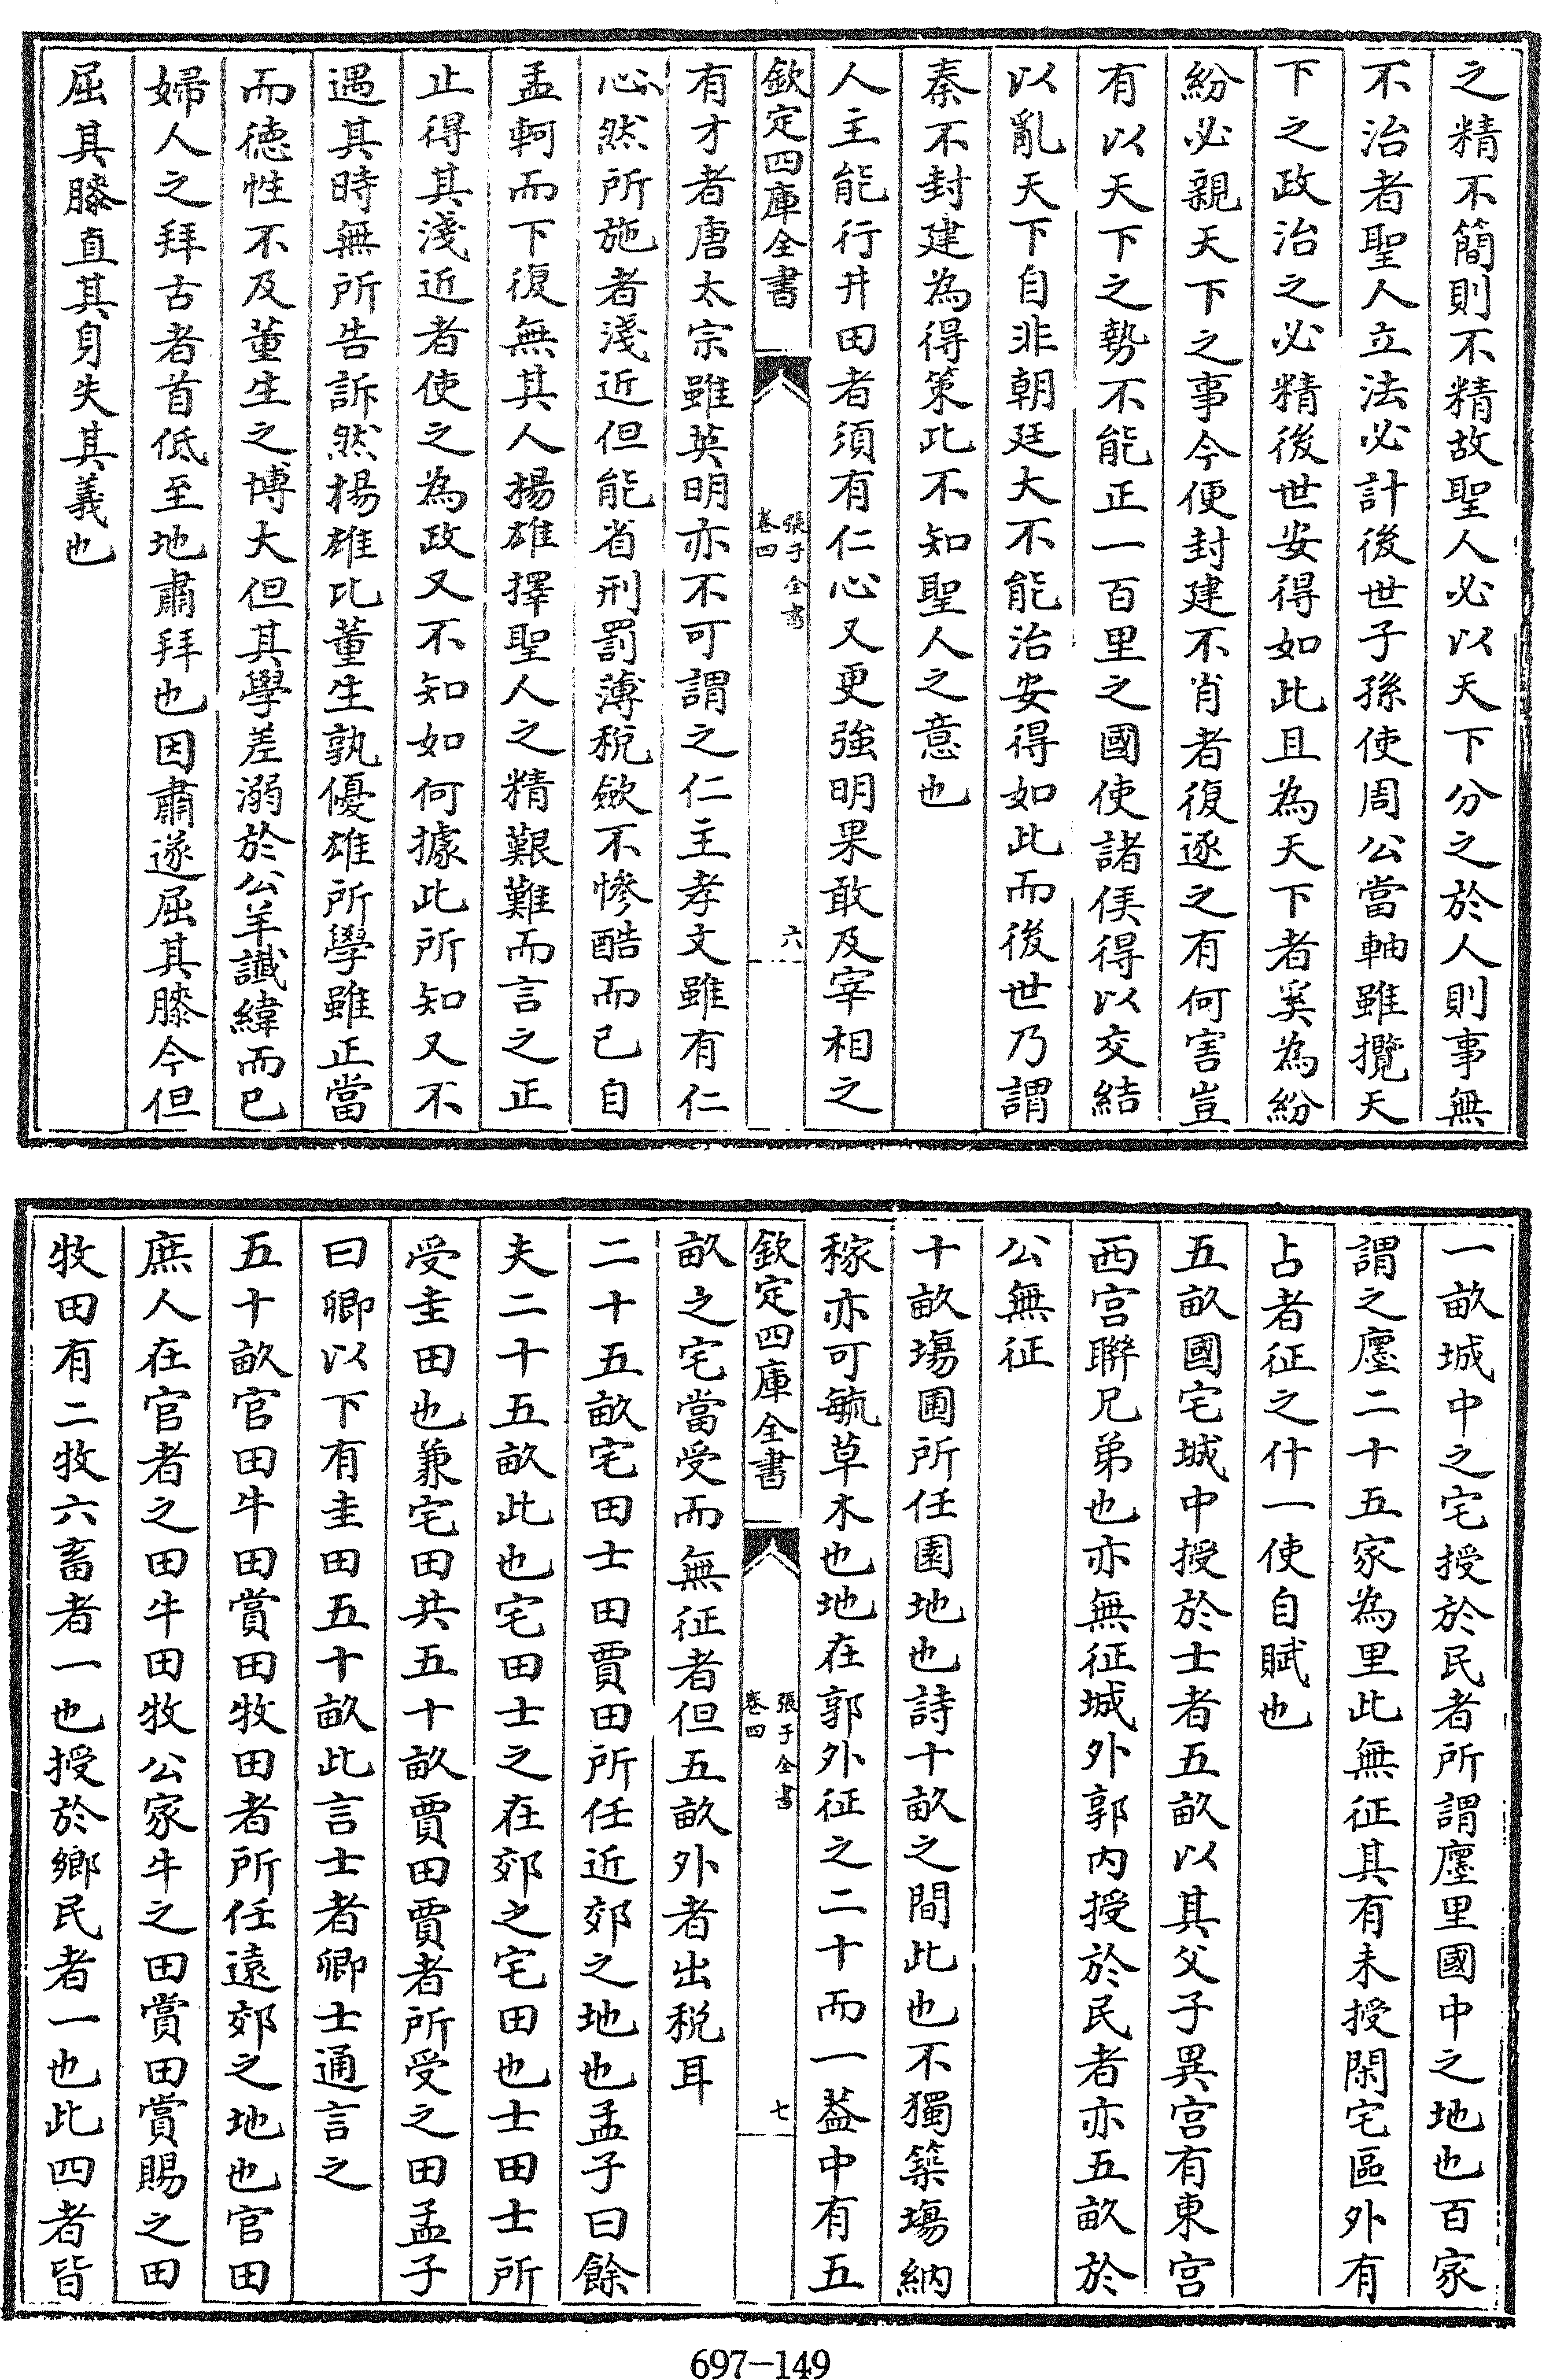 之精不簡則不精故聖人必以天下分之於人則事無
不治者聖人立法必計後世子孫使周公當軸雖攬天
下之政治之必精後世安得如此且為天下者奚為紛
紛必親天下之事今便封建不肖者復逐之有何害豈
有以天下之勢不能正一百里之國使諸侯得以交結
以亂天下自非朝廷大不能治安得如此而後世乃謂
秦不封建為得策此不知聖人之意也
人主能行井田者須有仁心又更強明果敢及宰相之
欽定四庫全書
張子全書
卷四
六
有才者唐太宗雖英明亦不可謂之仁主孝文雖有仁
心然所施者淺近但能省刑罰薄税歛不慘酷而已自
孟軻而下復無其人揚雄擇聖人之精艱難而言之正
止得其淺近者使之為政又不知如何據此所知又不
遇其時無所告訴然揚雄比董生孰優雄所學雖正當
而德性不及董生之博大但其學差溺於公羊讖緯而已
婦人之拜古者首低至地肅拜也因肅遂屈其膝今但
屈其膝直其身失其義也
一畝城中之宅授於民者所謂廛里國中之地也百家
謂之廛二十五家為里此無征其有未授閑宅區外有
占者征之什一使自賦也
五畝國宅城中授於士者五畝以其父子異宫有東宫
西宫聯兄弟也亦無征城外郭内授於民者亦五畝於
公無征
十畝塲圃所任園地也詩十畝之間此也不獨築塲納
稼亦可毓草木也地在郭外征之二十而一葢中有五
欽定四庫全書
張子全書
卷四
七
畝之宅當受而無征者但五畝外者出税耳
二十五畝宅田士田賈田所任近郊之地也孟子曰餘
夫二十五畝此也宅田士之在郊之宅田也士田士所
受圭田也兼宅田共五十畝賈田賈者所受之田孟子
曰卿以下有圭田五十畝此言士者卿士通言之
五十畝官田牛田賞田牧田者所任遠郊之地也官田
庶人在官者之田牛田牧公家牛之田賞田賞賜之田
牧田有二牧六畜者一也授於鄉民者一也此四者皆
697-149